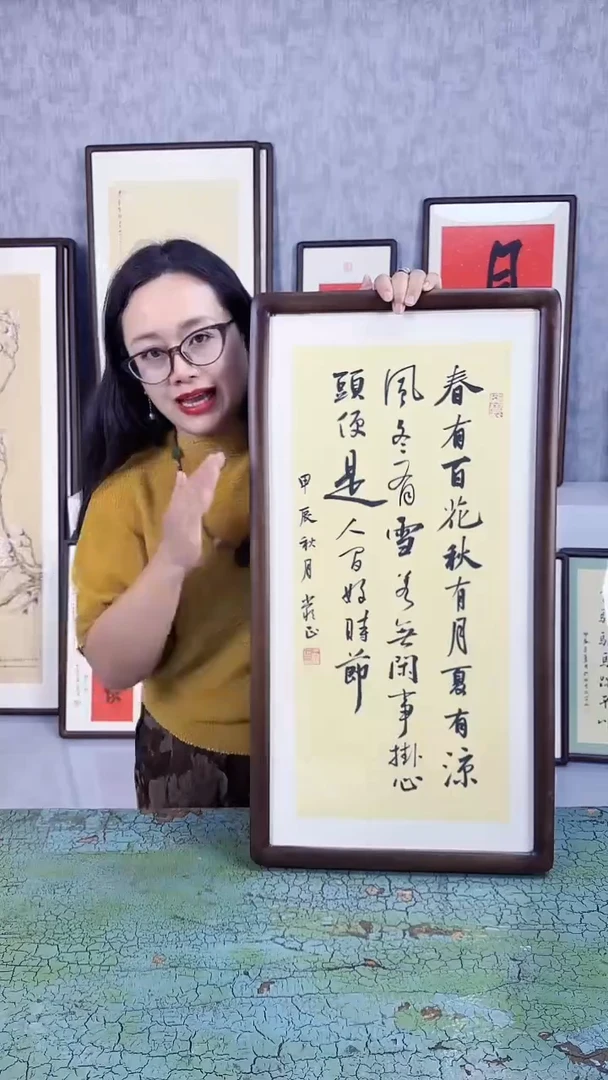 春有百花秋有月夏有涼
風冬有雪若無閑事掛心
頭便是人間好時節
甲辰秋月
月